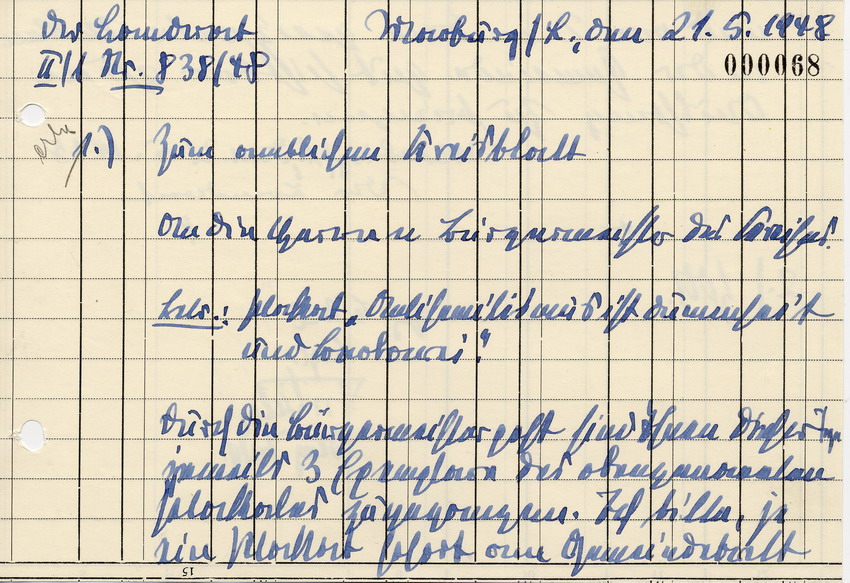 Der Landrat Marburg/L., den 21.5.1948
II/1 Nr. 838/48 000068
1.) Zum amtlichen Kreisblatt
An die Herren Bürgermeister des Kreises.
Betr.: Plakat „Antisemitismus ist Dummheit
und Barbarei."
Durch die Bürgermeisterpost sind Ihnen dieser Tage
jeweils 3 Exemplare des obengenannten
Plakates zugegangen. Ich bitte, je
ein Plakat sofort am Gemeindebrett
15